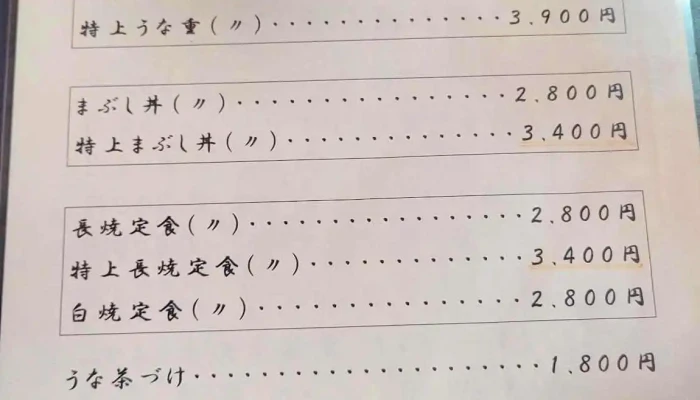 特上うな重(〃)・・・・・・・・・・・・・・・3.900円
まぶし丼(〃)・・・・・・・・・・・・・・・・・2.800円
特上まぶし丼(〃)・・・・・・・・・・・・・・3.400円
長焼定食(〃)・・・・・・・・・・・・・・・・・2.800円
特上長焼定食(〃)・・・・・・・・・・・・・・3.400円
白焼定食(〃)・・・・・・・・・・・・・・・・・2.800円
うな茶づけ・・・・・・・・・・・・・・・・・・・・・1.800円